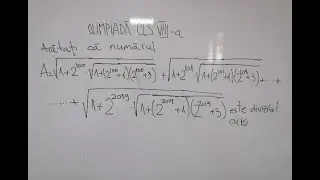 OLIMPIADĂ CLS VIII-a
Arătați că numărul
A=√(1+2^100·√(1+(2^100+1)(2^100+3))) + √(1+2^101·√(1+(2^101+1)(2^101+3))) + ... +
...... + √(1+2^2019·√(1+(2^2019+1)(2^2019+3))) este divizibil
cu 10